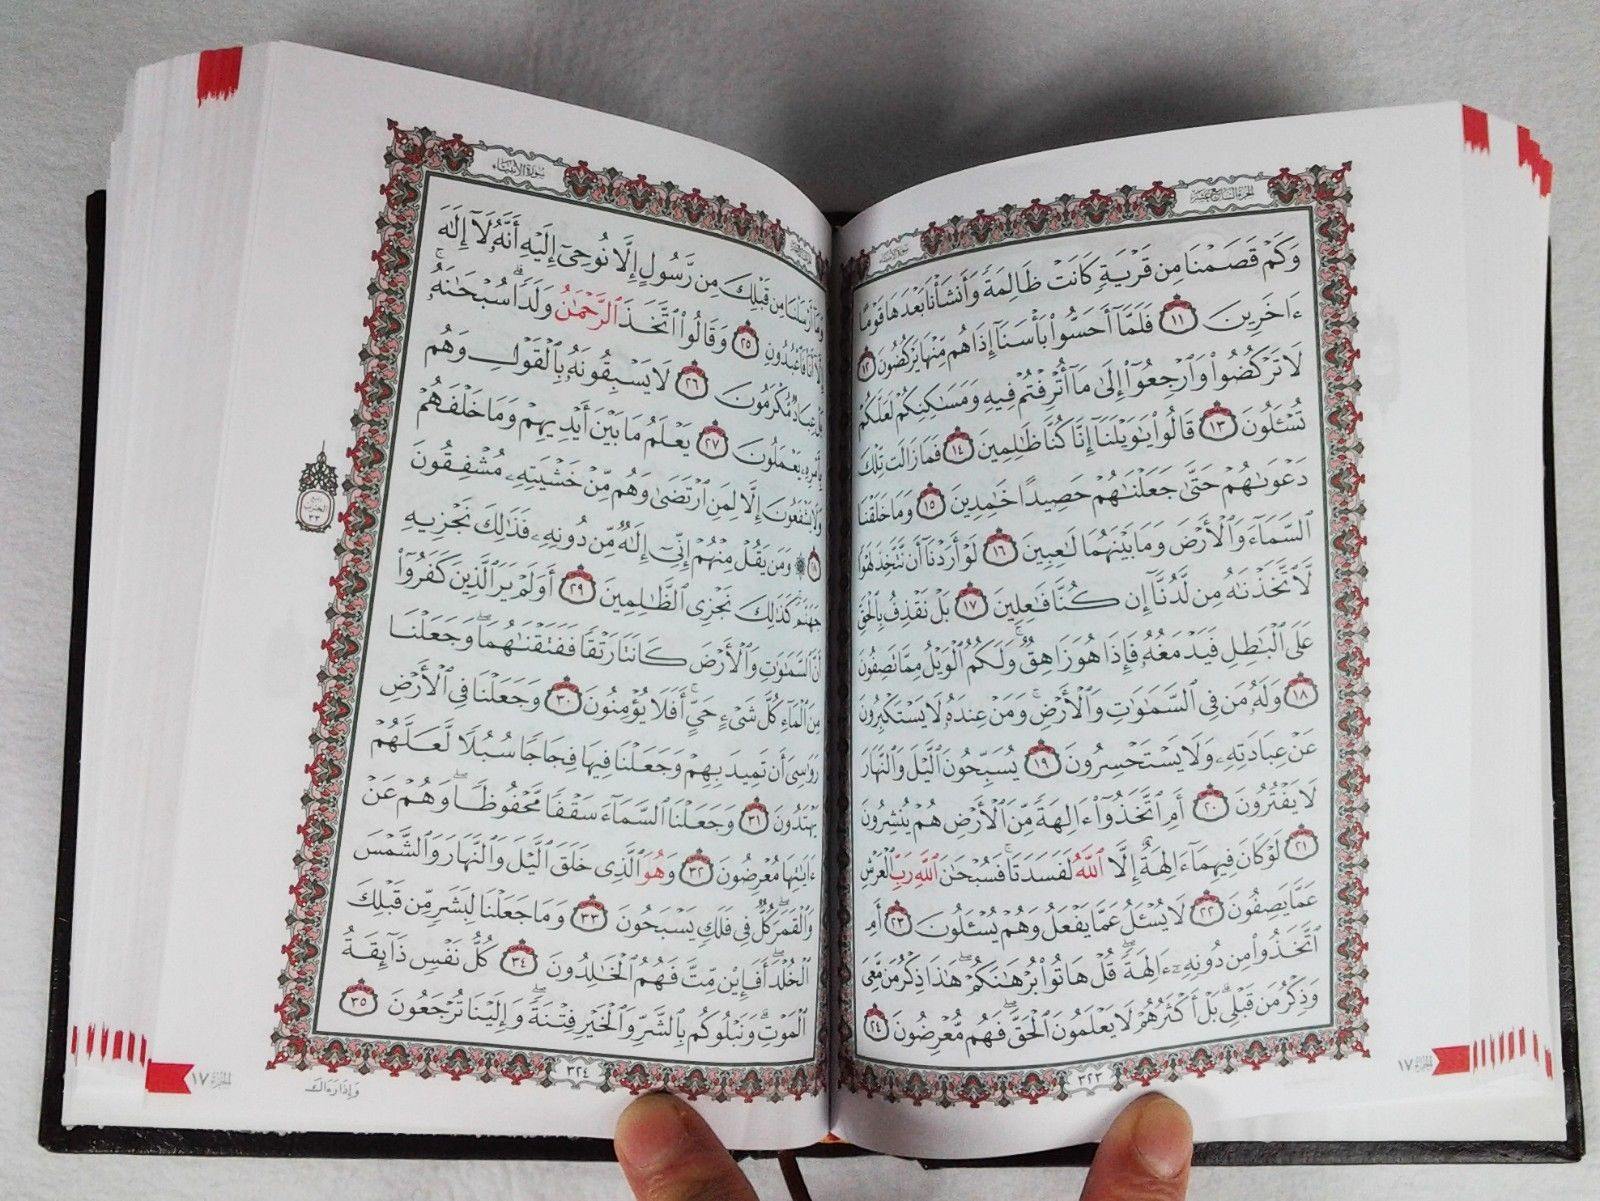 الجزء السابع عشر
سورة الأنبياء
وَكَمْ قَصَمْنَا مِن قَرْيَةٍ كَانَتْ ظَالِمَةً وَأَنشَأْنَا بَعْدَهَا قَوْمًا
ءَاخَرِينَ ١١ فَلَمَّآ أَحَسُّوا۟ بَأْسَنَآ إِذَا هُم مِّنْهَا يَرْكُضُونَ ١٢
لَا تَرْكُضُوا۟ وَٱرْجِعُوٓا۟ إِلَىٰ مَآ أُتْرِفْتُمْ فِيهِ وَمَسَـٰكِنِكُمْ لَعَلَّكُمْ
تُسْـَٔلُونَ ١٣ قَالُوا۟ يَـٰوَيْلَنَآ إِنَّا كُنَّا ظَـٰلِمِينَ ١٤ فَمَا زَالَت تِّلْكَ
دَعْوَىٰهُمْ حَتَّىٰ جَعَلْنَـٰهُمْ حَصِيدًا خَـٰمِدِينَ ١٥ وَمَا خَلَقْنَا
ٱلسَّمَآءَ وَٱلْأَرْضَ وَمَا بَيْنَهُمَا لَـٰعِبِينَ ١٦ لَوْ أَرَدْنَآ أَن نَّتَّخِذَ لَهْوًا
لَّٱتَّخَذْنَـٰهُ مِن لَّدُنَّآ إِن كُنَّا فَـٰعِلِينَ ١٧ بَلْ نَقْذِفُ بِٱلْحَقِّ
عَلَى ٱلْبَـٰطِلِ فَيَدْمَغُهُۥ فَإِذَا هُوَ زَاهِقٌ ۚ وَلَكُمُ ٱلْوَيْلُ مِمَّا تَصِفُونَ
١٨ وَلَهُۥ مَن فِى ٱلسَّمَـٰوَٰتِ وَٱلْأَرْضِ ۚ وَمَنْ عِندَهُۥ لَا يَسْتَكْبِرُونَ
عَنْ عِبَادَتِهِۦ وَلَا يَسْتَحْسِرُونَ ١٩ يُسَبِّحُونَ ٱلَّيْلَ وَٱلنَّهَارَ
لَا يَفْتُرُونَ ٢٠ أَمِ ٱتَّخَذُوٓا۟ ءَالِهَةً مِّنَ ٱلْأَرْضِ هُمْ يُنشِرُونَ
٢١ لَوْ كَانَ فِيهِمَآ ءَالِهَةٌ إِلَّا ٱللَّهُ لَفَسَدَتَا ۚ فَسُبْحَـٰنَ ٱللَّهِ رَبِّ ٱلْعَرْشِ
عَمَّا يَصِفُونَ ٢٢ لَا يُسْـَٔلُ عَمَّا يَفْعَلُ وَهُمْ يُسْـَٔلُونَ ٢٣ أَمِ
ٱتَّخَذُوا۟ مِن دُونِهِۦٓ ءَالِهَةً ۖ قُلْ هَاتُوا۟ بُرْهَـٰنَكُمْ ۖ هَـٰذَا ذِكْرُ مَن مَّعِىَ
وَذِكْرُ مَن قَبْلِى ۗ بَلْ أَكْثَرُهُمْ لَا يَعْلَمُونَ ٱلْحَقَّ ۖ فَهُم مُّعْرِضُونَ ٢٤
٣٢٣
الجزء ١٧
سورة الأنبياء
وَمَآ أَرْسَلْنَا مِن قَبْلِكَ مِن رَّسُولٍ إِلَّا نُوحِىٓ إِلَيْهِ أَنَّهُۥ لَآ إِلَـٰهَ
إِلَّآ أَنَا۠ فَٱعْبُدُونِ ٢٥ وَقَالُوا۟ ٱتَّخَذَ ٱلرَّحْمَـٰنُ وَلَدًا ۗ سُبْحَـٰنَهُۥ ۚ
بَلْ عِبَادٌ مُّكْرَمُونَ ٢٦ لَا يَسْبِقُونَهُۥ بِٱلْقَوْلِ وَهُم
بِأَمْرِهِۦ يَعْمَلُونَ ٢٧ يَعْلَمُ مَا بَيْنَ أَيْدِيهِمْ وَمَا خَلْفَهُمْ
وَلَا يَشْفَعُونَ إِلَّا لِمَنِ ٱرْتَضَىٰ وَهُم مِّنْ خَشْيَتِهِۦ مُشْفِقُونَ
٢٨ ۞ وَمَن يَقُلْ مِنْهُمْ إِنِّىٓ إِلَـٰهٌ مِّن دُونِهِۦ فَذَٰلِكَ نَجْزِيهِ
جَهَنَّمَ ۚ كَذَٰلِكَ نَجْزِى ٱلظَّـٰلِمِينَ ٢٩ أَوَلَمْ يَرَ ٱلَّذِينَ كَفَرُوٓا۟
أَنَّ ٱلسَّمَـٰوَٰتِ وَٱلْأَرْضَ كَانَتَا رَتْقًا فَفَتَقْنَـٰهُمَا ۖ وَجَعَلْنَا
مِنَ ٱلْمَآءِ كُلَّ شَىْءٍ حَىٍّ ۖ أَفَلَا يُؤْمِنُونَ ٣٠ وَجَعَلْنَا فِى ٱلْأَرْضِ
رَوَٰسِىَ أَن تَمِيدَ بِهِمْ وَجَعَلْنَا فِيهَا فِجَاجًا سُبُلًا لَّعَلَّهُمْ
يَهْتَدُونَ ٣١ وَجَعَلْنَا ٱلسَّمَآءَ سَقْفًا مَّحْفُوظًا ۖ وَهُمْ عَنْ
ءَايَـٰتِهَا مُعْرِضُونَ ٣٢ وَهُوَ ٱلَّذِى خَلَقَ ٱلَّيْلَ وَٱلنَّهَارَ وَٱلشَّمْسَ
وَٱلْقَمَرَ ۖ كُلٌّ فِى فَلَكٍ يَسْبَحُونَ ٣٣ وَمَا جَعَلْنَا لِبَشَرٍ مِّن قَبْلِكَ
ٱلْخُلْدَ ۖ أَفَإِي۟ن مِّتَّ فَهُمُ ٱلْخَـٰلِدُونَ ٣٤ كُلُّ نَفْسٍ ذَآئِقَةُ
ٱلْمَوْتِ ۗ وَنَبْلُوكُم بِٱلشَّرِّ وَٱلْخَيْرِ فِتْنَةً ۖ وَإِلَيْنَا تُرْجَعُونَ ٣٥
ربع
الحزب
٣٣
٣٢٤
وَإِذَا رَءَاكَ
الجزء ١٧